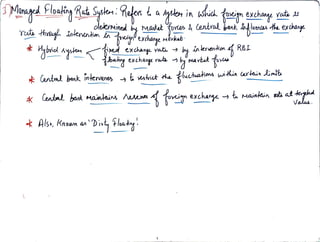 3) Managed Floating Rate System: Refers to a system in which foreign exchange rate is
determined by market forces & central bank influences the exchange
rate through intervention in foreign exchange market.
* Hybrid system fixed exchange rate → by intervention of RBI
floating exchange rate → by market forces
* Central bank intervenes → to restrict the fluctuations within certain limits
* Central bank maintains reserves of foreign exchange → to maintain rate at targeted
value.
* Also, known as 'Dirty Floating'